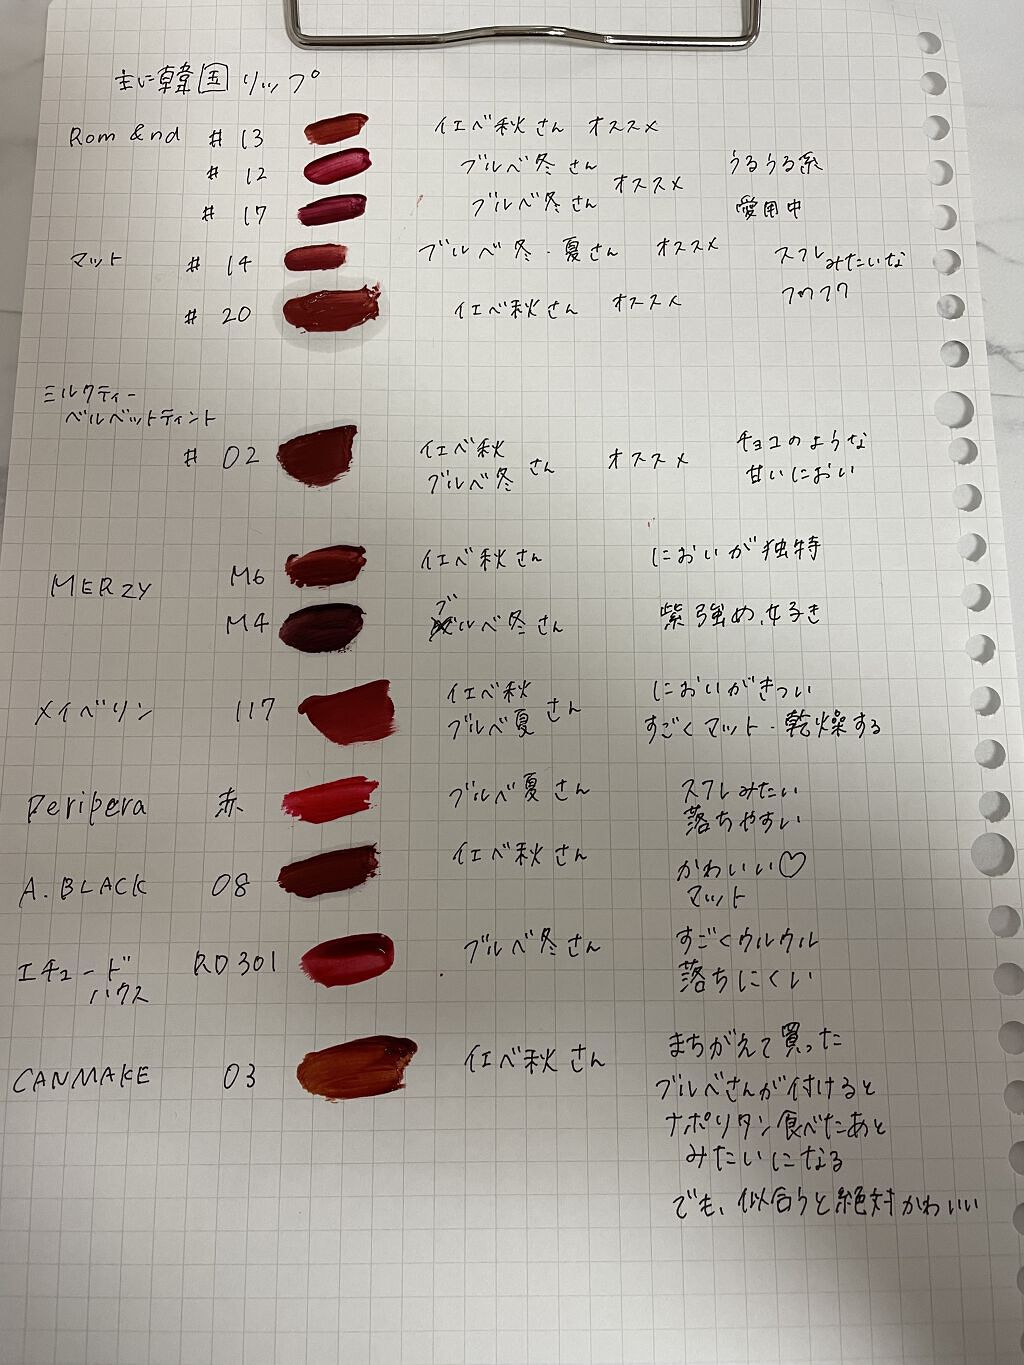 主に韓国リップ
Rom &nd # 13 イエベ秋さん オススメ
# 12 ブルベ冬さん オススメ うるうる系
# 17 ブルベ冬さん 愛用中
マット # 14 ブルベ冬・夏さん オススメ スフレみたいな
# 20 イエベ秋さん オススメ フワフワ
ミルクティー
ベルベットティント
# 02 イエベ秋 ブルベ冬 さん オススメ チョコのような
甘いにおい
MERZY M6 イエベ秋さん においが独特
M4 ブルベ冬さん 紫強め、好き
メイベリン 117 イエベ秋 ブルベ夏 さん においがきつい
すごくマット・乾燥する
Peripera 赤 ブルベ夏さん スフレみたい
落ちやすい
A.BLACK 08 イエベ秋さん かわいい♡
マット
エチュード
ハウス RD301 ブルベ冬さん すごくウルウル
落ちにくい
CANMAKE 03 イエベ秋さん まちがえて買った
ブルベさんが付けると
ナポリタン食べたあと
みたいになる
でも、似合うと絶対かわいい